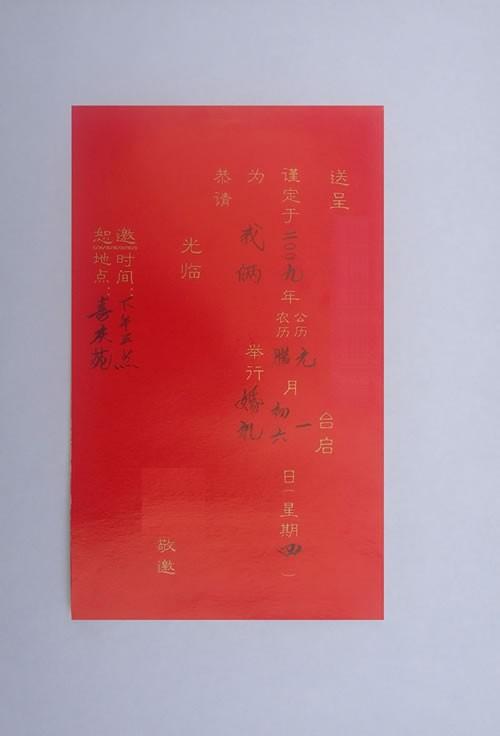 送呈 台启
谨定于二〇〇九年 公历元 农历腊 月 一 初六 日(星期四)
为我俩举行婚礼
恭请
光临
敬邀
邀时间:下午五点
恕地点:喜庆苑